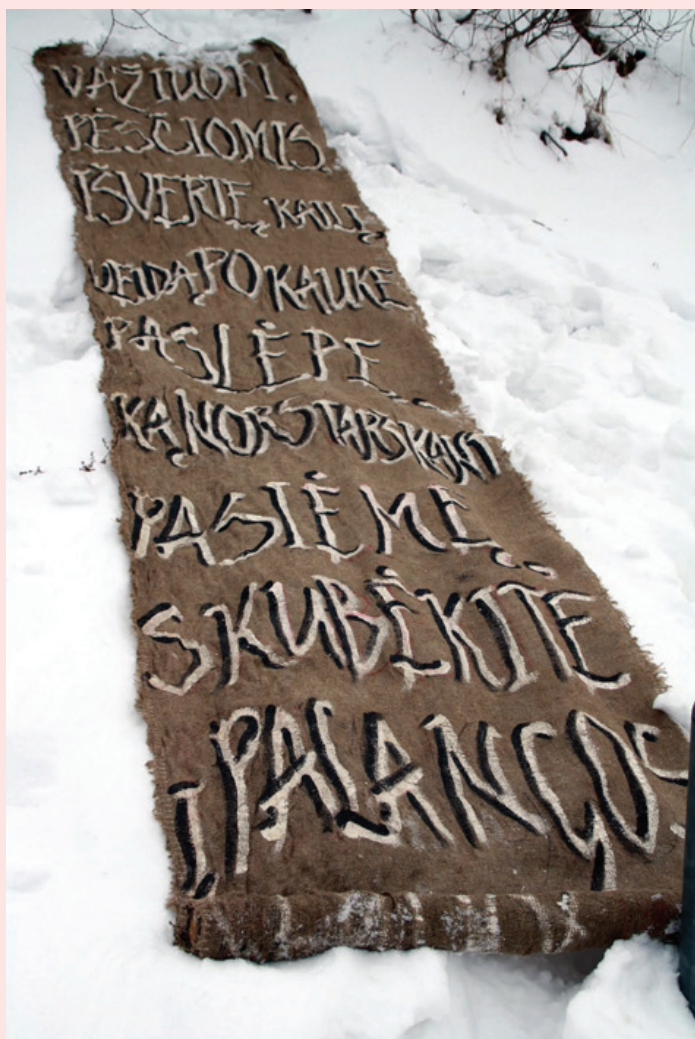 VAŽIUOTI,
PĖSČIOMIS,
IŠVERTĘ KAILĮ
VEIDĄ PO KAUKE
PASLĖPĘ
KĄ NORS TARŠKANT
PASIĖMĘ
SKUBĖKITE
Į PALANGOS